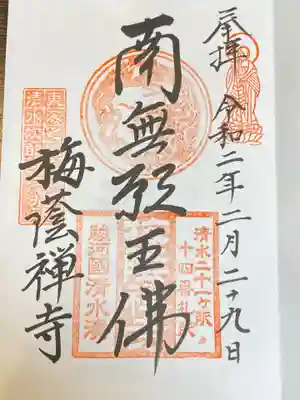 奉拝 令和二年二月二十九日
南無願王佛
梅蔭禅寺
清水二十一ヶ所
十四番札所
駿河國清水湊